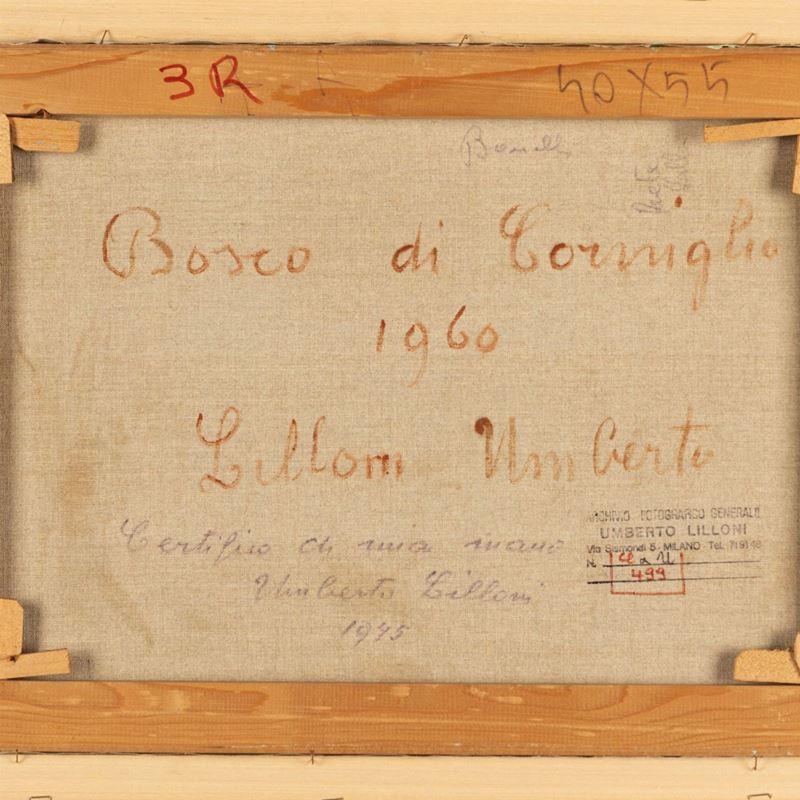 3R
40X55
Bosco di Corniglio
1960
Lilloni Umberto
Certifico di mia mano
Umberto Lilloni
1975
ARCHIVIO FOTOGRAFICO GENERALE
UMBERTO LILLONI
Via Sismondi 5 - MILANO - Tel.
N.
499